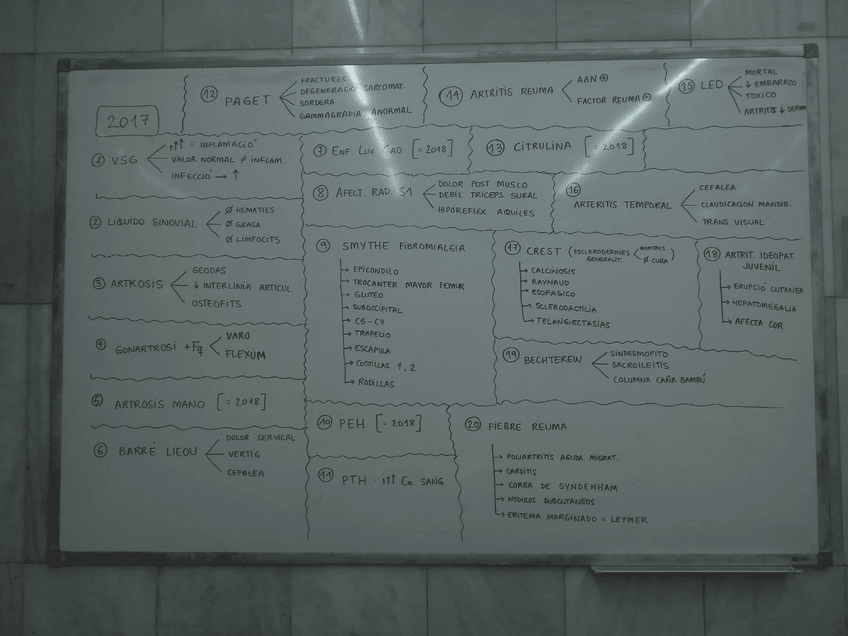 2017
12 PAGET
FRACTURES
DEGENERACIÓ SARCOMAT.
SORDERA
GAMMAGRAFIA ANORMAL
14 ARTRITIS REUMA
AAN ⊕
FACTOR REUMA ⊕
15 LED
MORTAL
↓ EMBARAZO
TOXICO
ARTRITIS ↓ DEFORM
1 VSG
↑↑↑ = INFLAMACIÓ
VALOR NORMAL ≠ INFLAM
INFECCIÓ → ↑
7 ENF. LUX. CAD [= 2018]
13 CITRULINA [= 2018]
8 AFECT. RAD S1
DOLOR POST MUSLO
DEBIL TRÍCEPS SURAL
HIPOREFLEX AQUILES
16 ARTERITIS TEMPORAL
CEFALEA
CLAUDICACION MANDIB.
TRANS VISUAL
2 LIQUIDO SINOVIAL
Ø HEMATIES
Ø GRASA
Ø LIMFOCITS
9 SMYTHE FIBROMIALGIA
EPICONDILO
TROCANTER MAYOR FEMUR
GLUTEO
SUBOCCIPITAL
C5 - C7
TRAPECIO
ESCAPULA
COSTILLAS 1, 2
RODILLAS
17 CREST (ESCLERODERMIES GENERALIT. < MORTALS
Ø CURA)
CALCINOSIS
RAYNAUD
ESOFAGICO
SCLERODACTILIA
TELANGIECTASIAS
18 ARTRIT. IDEOPAT.
JUVENIL
ERUPCIÓ CUTANEA
HEPATOMEGALIA
AFECTA COR
3 ARTROSIS
GEODAS
↓ INTERLINIA ARTICUL.
OSTEOFITS
4 GONARTROSI + Fq
VARO
FLEXUM
19 BECHTEREW
SINDESMOFITO
SACROILEITIS
COLUMNA CAÑA BAMBÚ
5 ARTROSIS MANO [= 2018]
6 BARRÉ LIEOU
DOLOR CERVICAL
VERTIG
CEFALEA
10 PEH [= 2018]
11 PTH = ↑↑↑ Ca SANG
20 FIEBRE REUMA
POLIARTRITIS AGUDA MIGRAT.
CARDITIS
COREA DE SYNDENHAM
NODULOS SUBCUTANEOS
ERITEMA MARGINADO = LEYMER